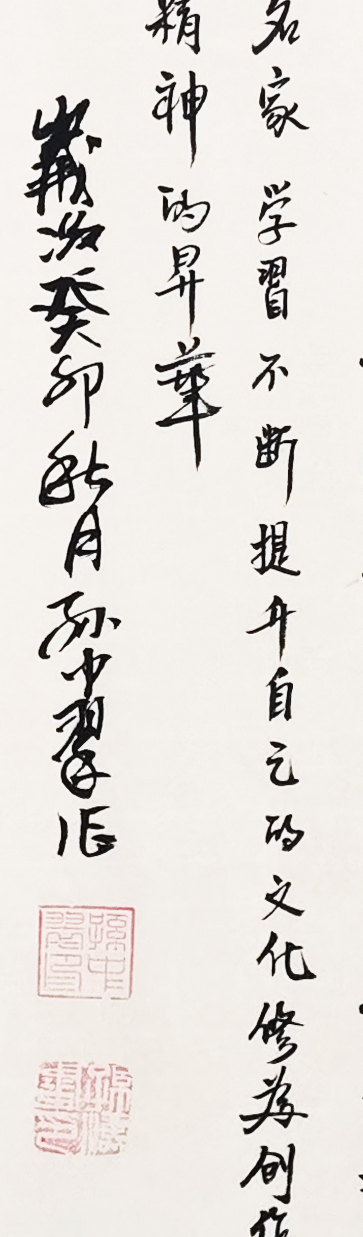 名家学習不断提升自己的文化修为创作
精神的昇華
歲次癸卯秋月孙中翠作